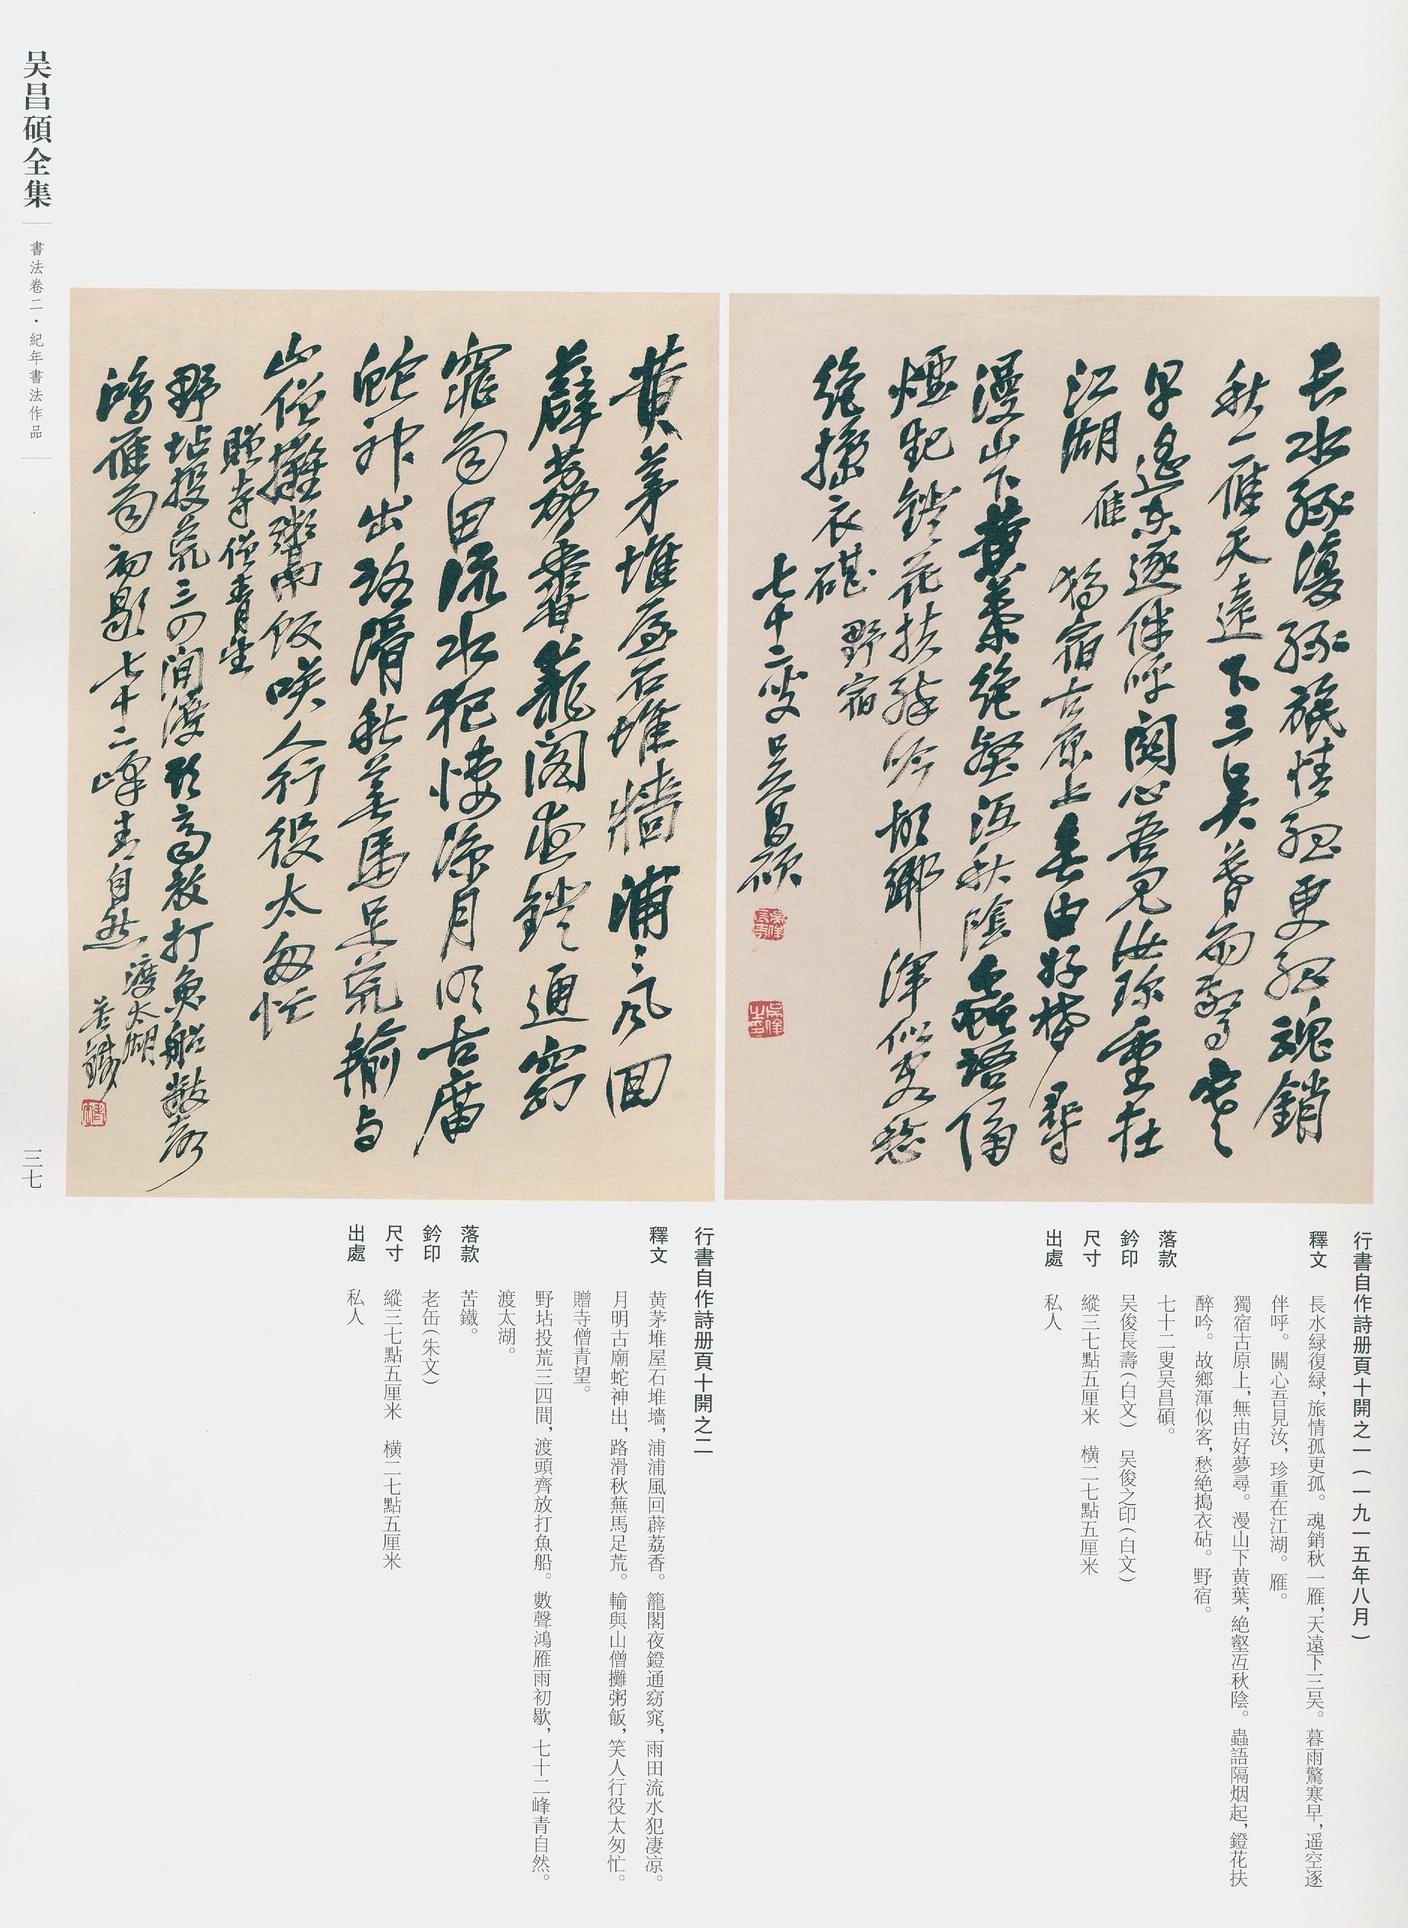 吴昌碩全集
書法卷二・紀年書法作品
三七
長水緑復緑旅情孤更孤魂銷
秋一雁天遠下三吴暮雨驚寒
早遥空逐伴呼關心吾見汝珍重在
江湖 雁 獨宿古原上無由好夢尋
漫山下黄葉絶壑冱秋陰蟲語隔
烟起鐙花扶醉吟故鄉渾似客愁
絶擣衣碪 野宿
七十二叟吴昌碩
黄茅堆屋石堆牆浦浦風回
薜荔香籠閣夜鐙通窈
窕雨田流水犯悽凉月明古廟
蛇神出路滑秋蕪馬足荒輸与
山僧攤粥飯笑人行役太匆忙
贈寺僧青望
野坫投荒三四間渡頭齊放打魚船數聲
鴻雁雨初歇七十二峰青自然
渡太湖
苦鐵
行書自作詩册頁十開之一（一九一五年八月）
釋文 長水緑復緑，旅情孤更孤。魂銷秋一雁，天遠下三吴。暮雨驚寒早，遥空逐
伴呼。關心吾見汝，珍重在江湖。雁。
獨宿古原上，無由好夢尋。漫山下黄葉，絶壑冱秋陰。蟲語隔烟起，鐙花扶
醉吟。故鄉渾似客，愁絶搗衣砧。野宿。
落款 七十二叟吴昌碩。
鈐印 吴俊長壽（白文） 吴俊之印（白文）
尺寸 縱三七點五厘米 横二七點五厘米
出處 私人
行書自作詩册頁十開之二
釋文 黄茅堆屋石堆墻，浦浦風回薜荔香。籠閣夜鐙通窈窕，雨田流水犯凄凉。
月明古廟蛇神出，路滑秋蕪馬足荒。輸與山僧攤粥飯，笑人行役太匆忙。
贈寺僧青望。
野坫投荒三四間，渡頭齊放打魚船。數聲鴻雁雨初歇，七十二峰青自然。
渡太湖。
落款 苦鐵。
鈐印 老缶（朱文）
尺寸 縱三七點五厘米 横二七點五厘米
出處 私人